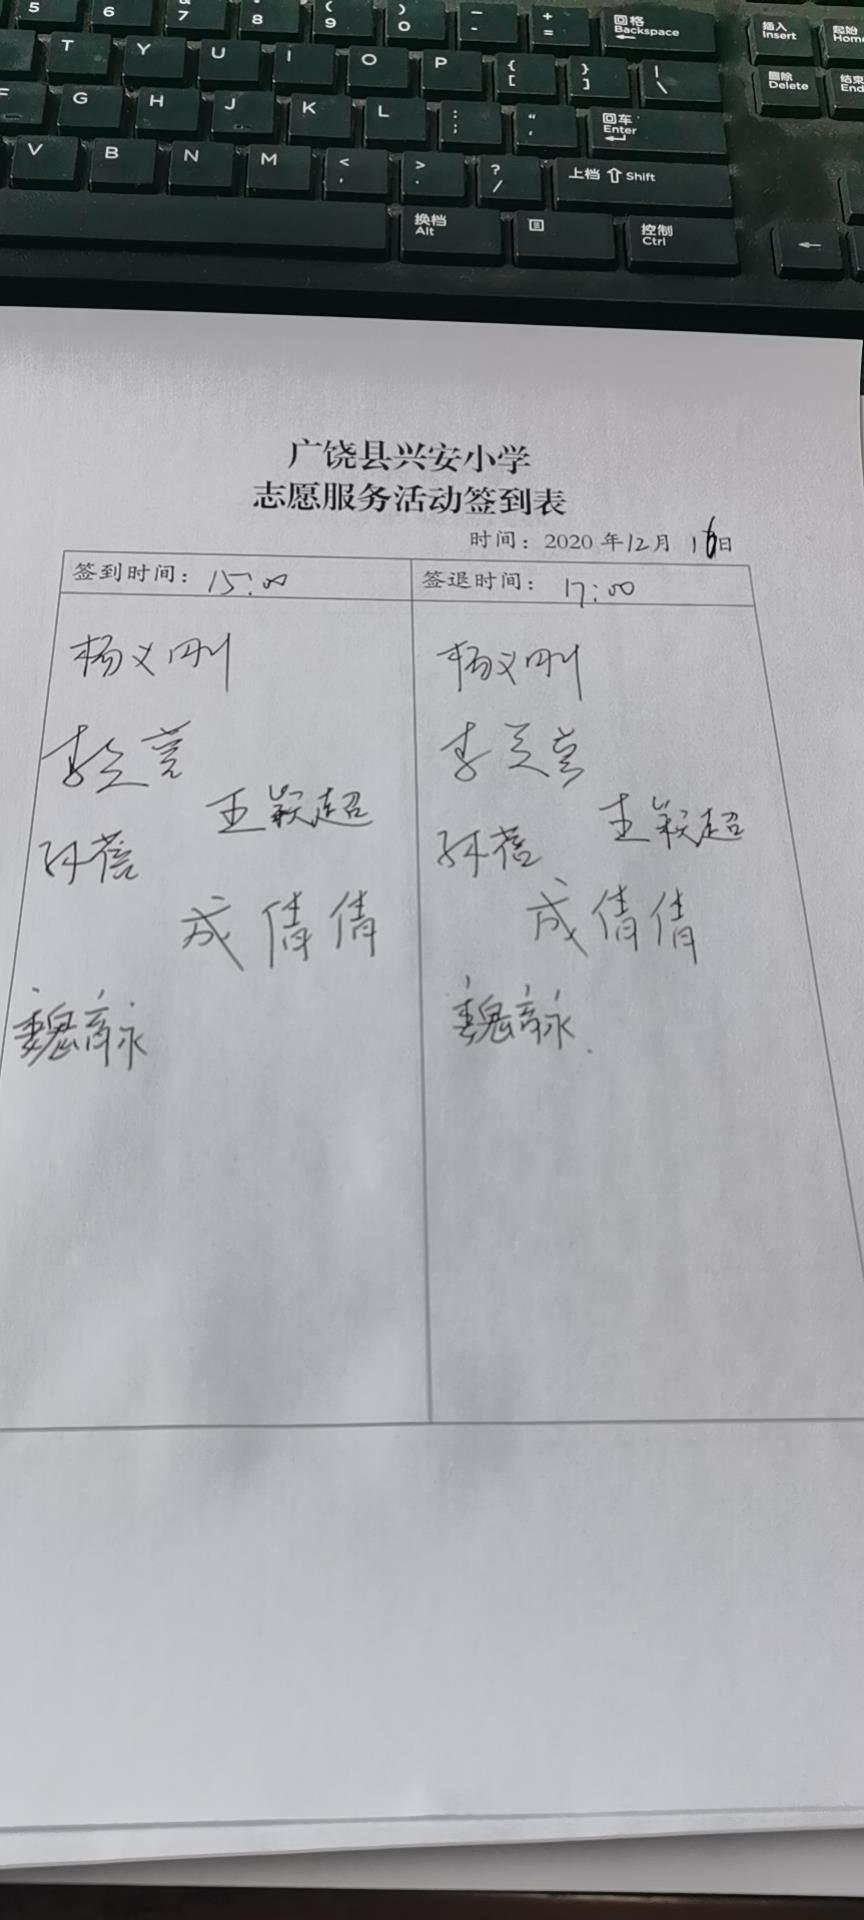 5 6 & 7 * 8 ( 9 ) 0 _ - + = 回格 Backspace 插入 Insert 起始 Home
T Y U I O P { [ } ] | \ 删除 Delete 结束 End
F G H J K L : ; " ' 回车 Enter
V B N M < , > . ? / 上档 Shift
换档 Alt 控制 Ctrl
广饶县兴安小学
志愿服务活动签到表
时间：2020 年12月 16日
签到时间：15:00 签退时间：17:00
杨义刚 杨义刚
李
王颖超 王颖超
孙蓓 孙蓓
成倩倩 成倩倩
魏 魏